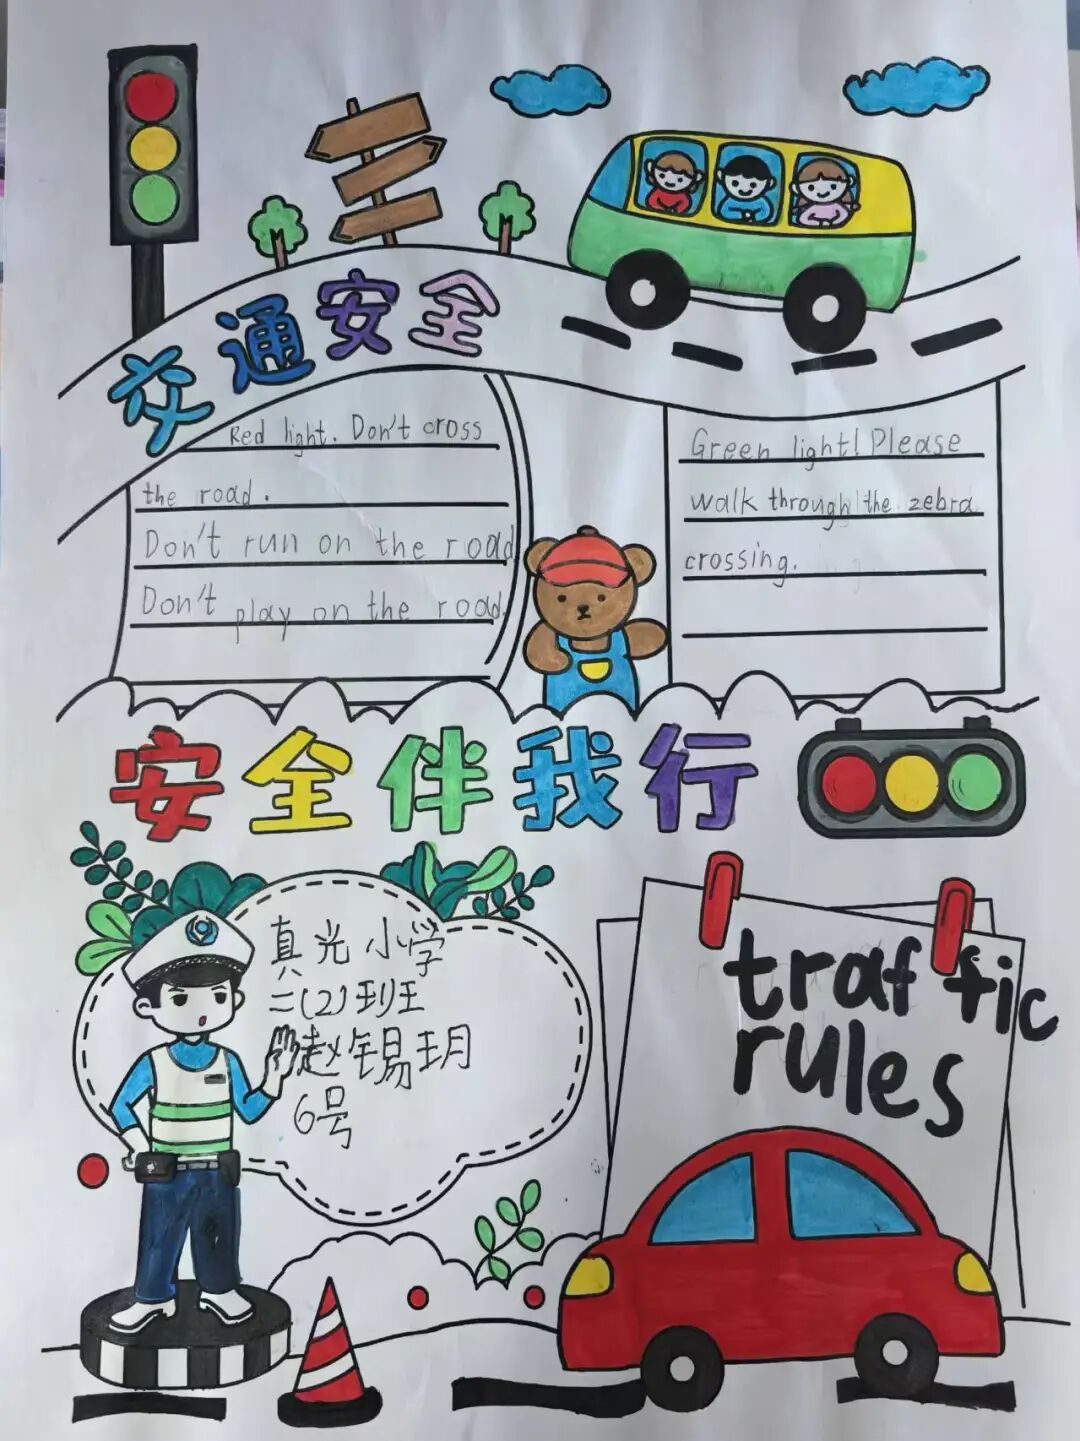 交通安全
Red light. Don't cross
the road.
Don't run on the road
Don't play on the road.
Green light! Please
walk through the zebra
crossing.
安全伴我行
真光小学
二(2)班
赵锡玥
6号
traffic
rules